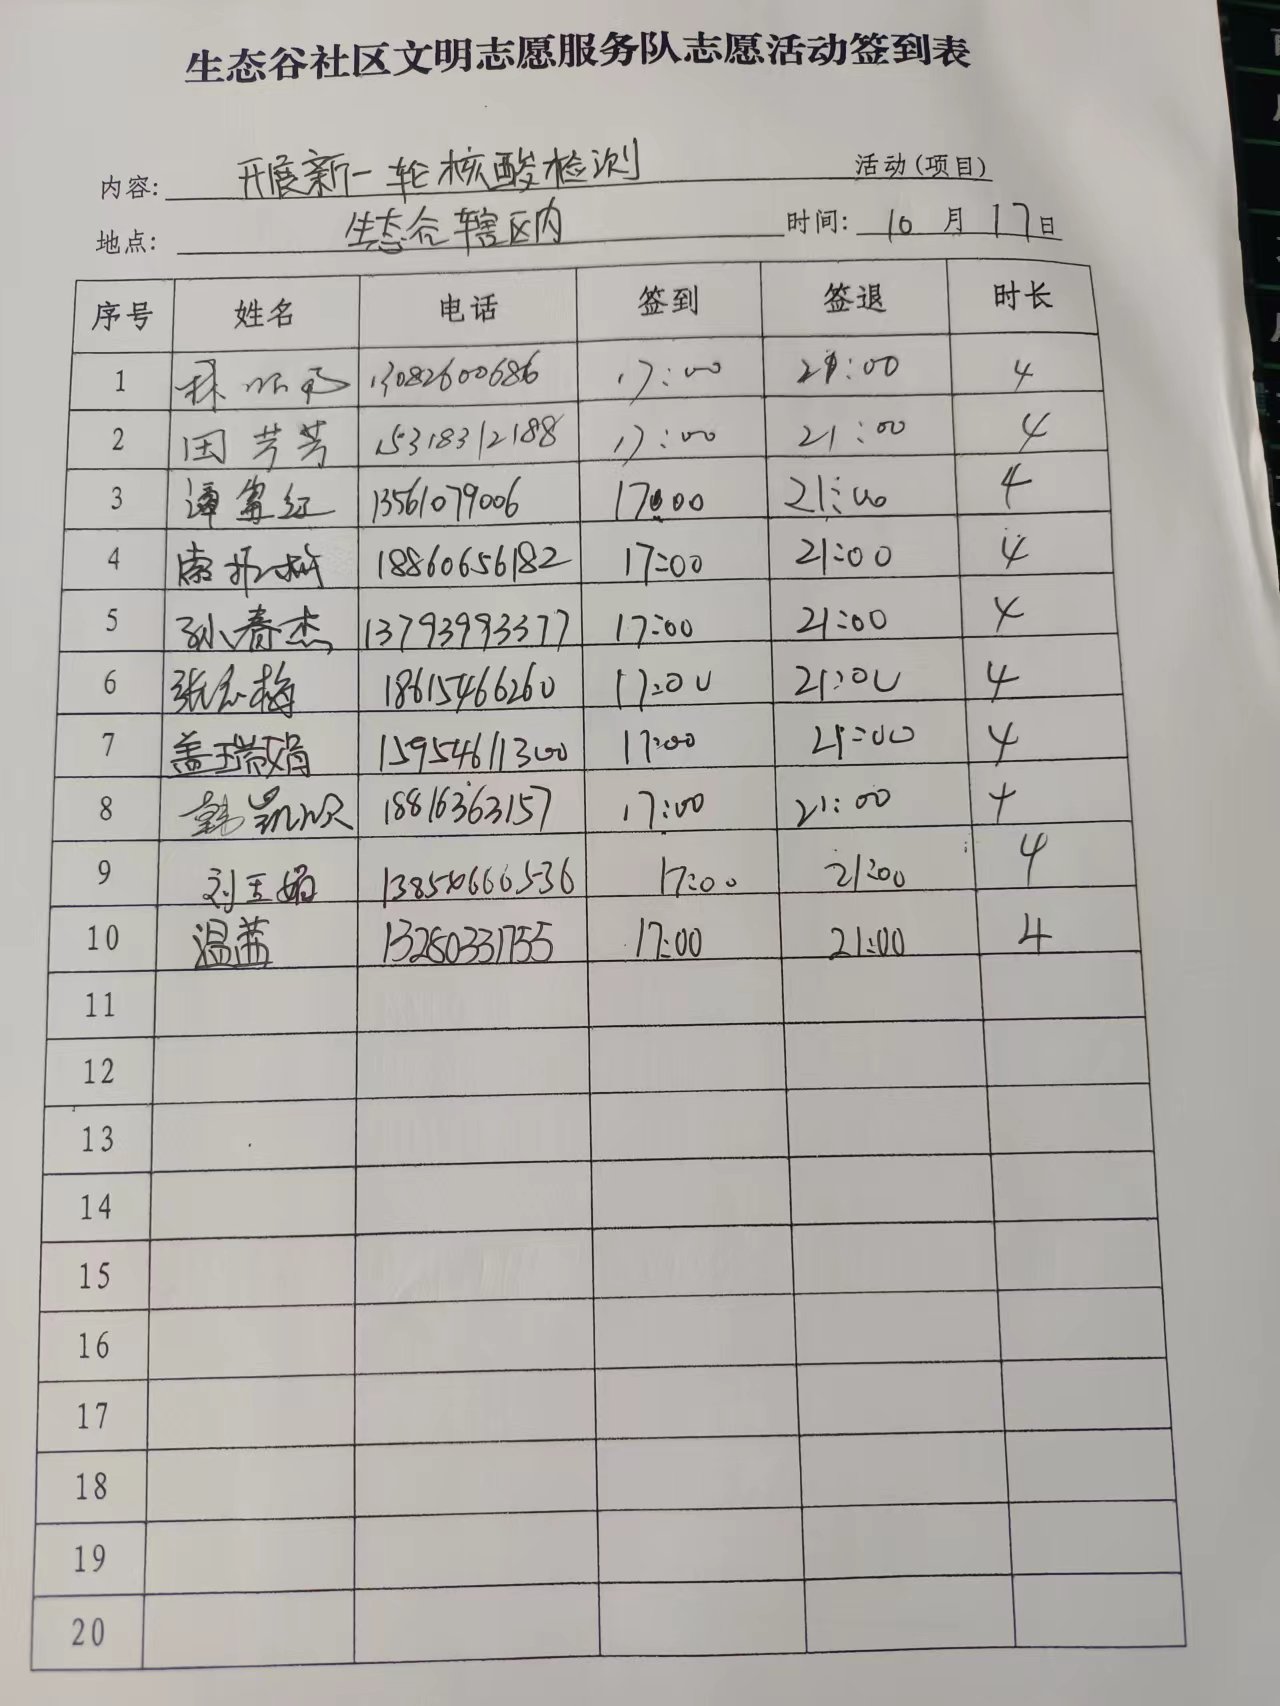 生态谷社区文明志愿服务队志愿活动签到表
内容: 开展新一轮核酸检测 活动(项目)
地点: 生态谷辖区内 时间: 10 月 17 日
序号 姓名 电话 签到 签退 时长
1 13082600686 17:00 21:00 4
2 田芳芳 15318312188 17:00 21:00 4
3 谭富红 13561079006 17:00 21:00 4
4 18860656182 17:00 21:00 4
5 孙春杰 13793993377 17:00 21:00 4
6 张玉梅 18615466260 17:00 21:00 4
7 盖瑞娟 15954611300 17:00 21:00 4
8 韩凯欣 18816363157 17:00 21:00 4
9 刘玉娟 17:00 21:00 4
10 温茜 13280331755 17:00 21:00 4
11
12
13
14
15
16
17
18
19
20